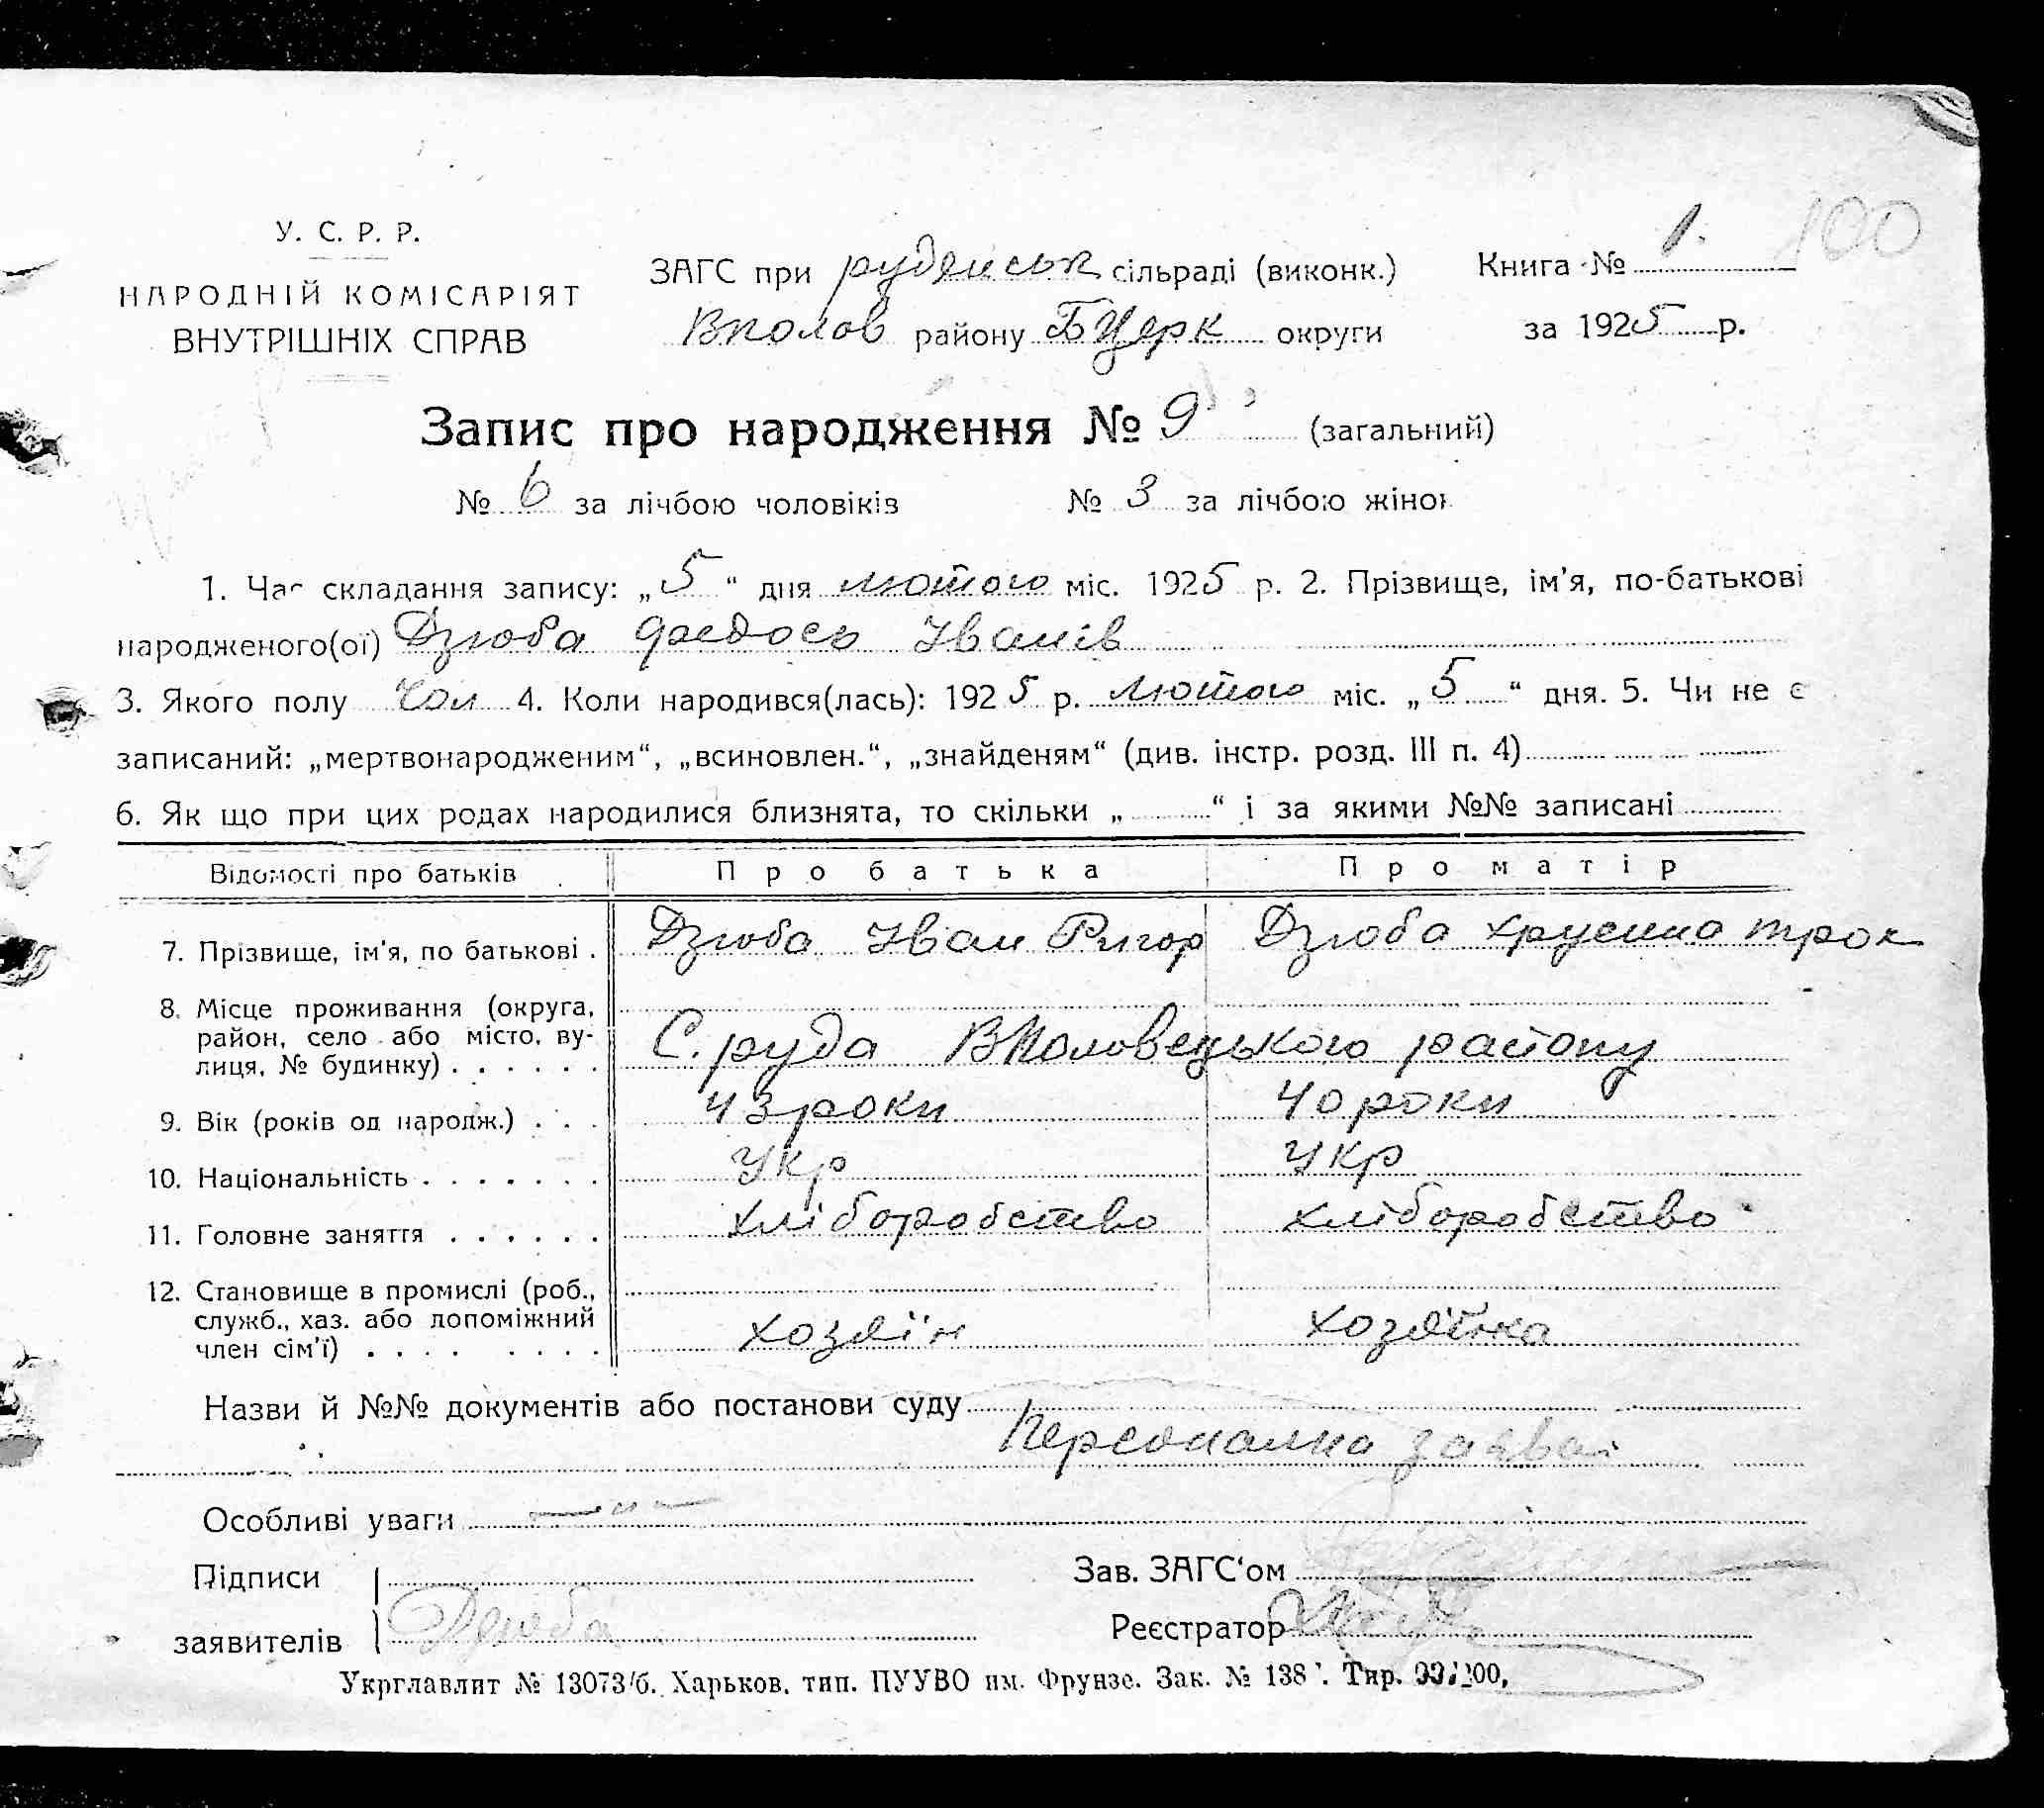 100
У. С. Р. Р.
НАРОДНІЙ КОМІСАРІЯТ
ВНУТРІШНІХ СПРАВ
ЗАГС при рудянськ сільраді (виконк.)
Вполов району БЦерк округи
Книга № 1.
за 1925 р.
Запис про народження № 9 (загальний)
№ 6 за лічбою чоловіків № 3 за лічбою жінок
1. Час складання запису: „5“ дня лютого міс. 1925 р. 2. Прізвище, ім'я, по-батькові
народженого(ої) Дзюба Федось Іванів
3. Якого полу Чол 4. Коли народився(лась): 1925 р. лютого міс. „5“ дня. 5. Чи не є
записаний: „мертвонародженим“, „всиновлен.“, „знайденям“ (див. інстр. розд. III п. 4)
6. Як що при цих родах народилися близнята, то скільки „ “ і за якими №№ записані
Відомості про батьків Про батька Про матір
7. Прізвище, ім'я, по батькові . Дзюба Іван Ригор Дзюба Хрусина трох
8. Місце проживання (округа,
район, село або місто, ву-
лиця, № будинку) . . . . . . С. руда ВПоловецького району
9. Вік (років од народж.) . . . 43 роки 40 роки
10. Національність . . . . . . . Укр Укр
11. Головне заняття . . . . . . хліборобство хліборобство
12. Становище в промислі (роб.,
служб., хаз. або допоміжний
член сім'ї) . . . . . . . . хозяїн хозяїнка
Назви й №№ документів або постанови суду
Персонална заява
Особливі уваги — „ —
Підписи
заявителів Дзюба
Зав. ЗАГС‘ом
Реєстратор
Укрглавлит № 13073/б. Харьков. тип. ПУУВО им. Фрунзе. Зак. № 138 . Тир.